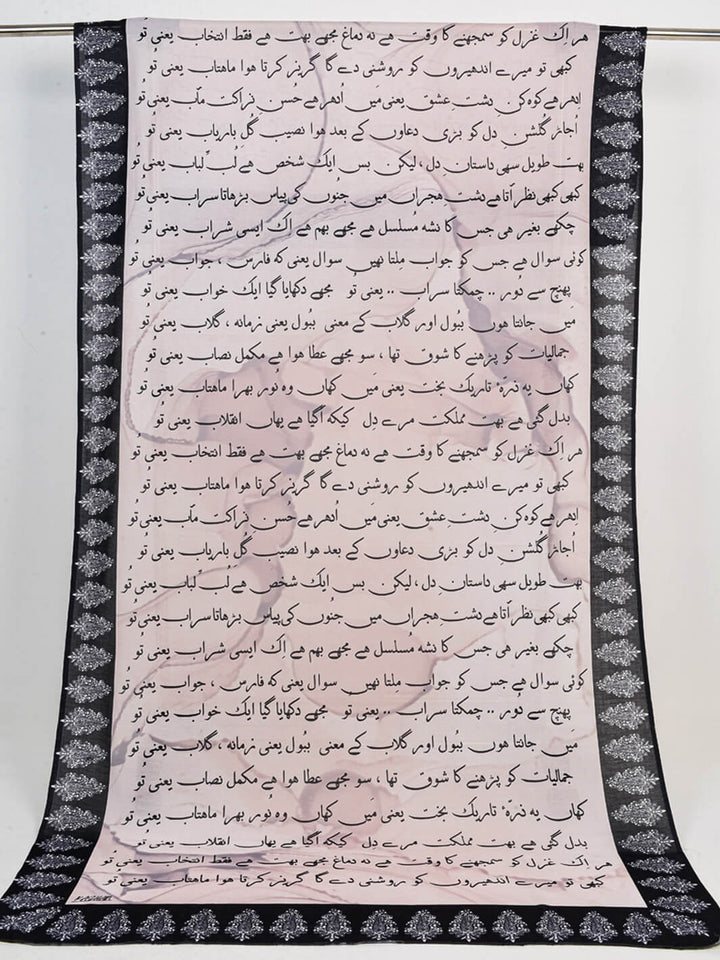 ہر اِک غزل کو سمجھنے کا وقت ہے نہ دماغ مجھے بہت ہے فقط انتخاب یعنی تُو
کبھی تو میرے اندھیروں کو روشنی دے گا گریز کرتا ہوا ماہتاب یعنی تُو
اِدھر ہے کوہ کنِ دشتِ عشق یعنی مَیں اُدھر ہے حُسنِ نزاکت مآب یعنی تُو
اجاڑ گُلشنِ دل کو بڑی دعاوں کے بعد ہوا نصیب گُلِ باریاب یعنی تُو
بہت طویل سہی داستانِ دل ، لیکن بس ایک شخص ہے لُبِّ لباب یعنی تُو
کبھی کبھی نظر آتا ہے دشتِ ہجراں میں جنُوں کی پیاس بڑھاتا سراب یعنی تُو
چکھے بغیر ہی جس کا نشہ مُسلسل ہے مجھے بہم ہے اِک ایسی شراب یعنی تُو
کوئی سوال ہے جس کو جواب مِلتا نہیں سوال یعنی کہ فارس ، جواب یعنی تُو
پہنچ سے دُور .. چمکتا سراب .. یعنی تُو مجھے دکھایا گیا ایک خواب یعنی تُو
مَیں جانتا ہوں ببُول اور گلاب کے معنی ببُول یعنی زمانہ ، گلاب یعنی تُو
جمالیات کو پڑھنے کا شوق تھا ، سو مجھے عطا ہوا ہے مکمل نصاب یعنی تُو
کہاں یہ ذرّہٴ تاریک بخت یعنی مَیں کہاں وہ نُور بھرا ماہتاب یعنی تُو
بدل گئی ہے بہت مملکت مرے دِل کی کہ آگیا ہے یہاں انقلاب یعنی تُو
ہر اِک غزل کو سمجھنے کا وقت ہے نہ دماغ مجھے بہت ہے فقط انتخاب یعنی تُو
کبھی تو میرے اندھیروں کو روشنی دے گا گریز کرتا ہوا ماہتاب یعنی تُو
اِدھر ہے کوہ کنِ دشتِ عشق یعنی مَیں اُدھر ہے حُسنِ نزاکت مآب یعنی تُو
اجاڑ گُلشنِ دل کو بڑی دعاوں کے بعد ہوا نصیب گُلِ باریاب یعنی تُو
بہت طویل سہی داستانِ دل ، لیکن بس ایک شخص ہے لُبِّ لباب یعنی تُو
کبھی کبھی نظر آتا ہے دشتِ ہجراں میں جنُوں کی پیاس بڑھاتا سراب یعنی تُو
چکھے بغیر ہی جس کا نشہ مُسلسل ہے مجھے بہم ہے اِک ایسی شراب یعنی تُو
کوئی سوال ہے جس کو جواب مِلتا نہیں سوال یعنی کہ فارس ، جواب یعنی تُو
پہنچ سے دُور .. چمکتا سراب .. یعنی تُو مجھے دکھایا گیا ایک خواب یعنی تُو
مَیں جانتا ہوں ببُول اور گلاب کے معنی ببُول یعنی زمانہ ، گلاب یعنی تُو
جمالیات کو پڑھنے کا شوق تھا ، سو مجھے عطا ہوا ہے مکمل نصاب یعنی تُو
کہاں یہ ذرّہٴ تاریک بخت یعنی مَیں کہاں وہ نُور بھرا ماہتاب یعنی تُو
بدل گئی ہے بہت مملکت مرے دِل کی کہ آگیا ہے یہاں انقلاب یعنی تُو
ہر اِک غزل کو سمجھنے کا وقت ہے نہ دماغ مجھے بہت ہے فقط انتخاب یعنی تُو
کبھی تو میرے اندھیروں کو روشنی دے گا گریز کرتا ہوا ماہتاب یعنی تُو